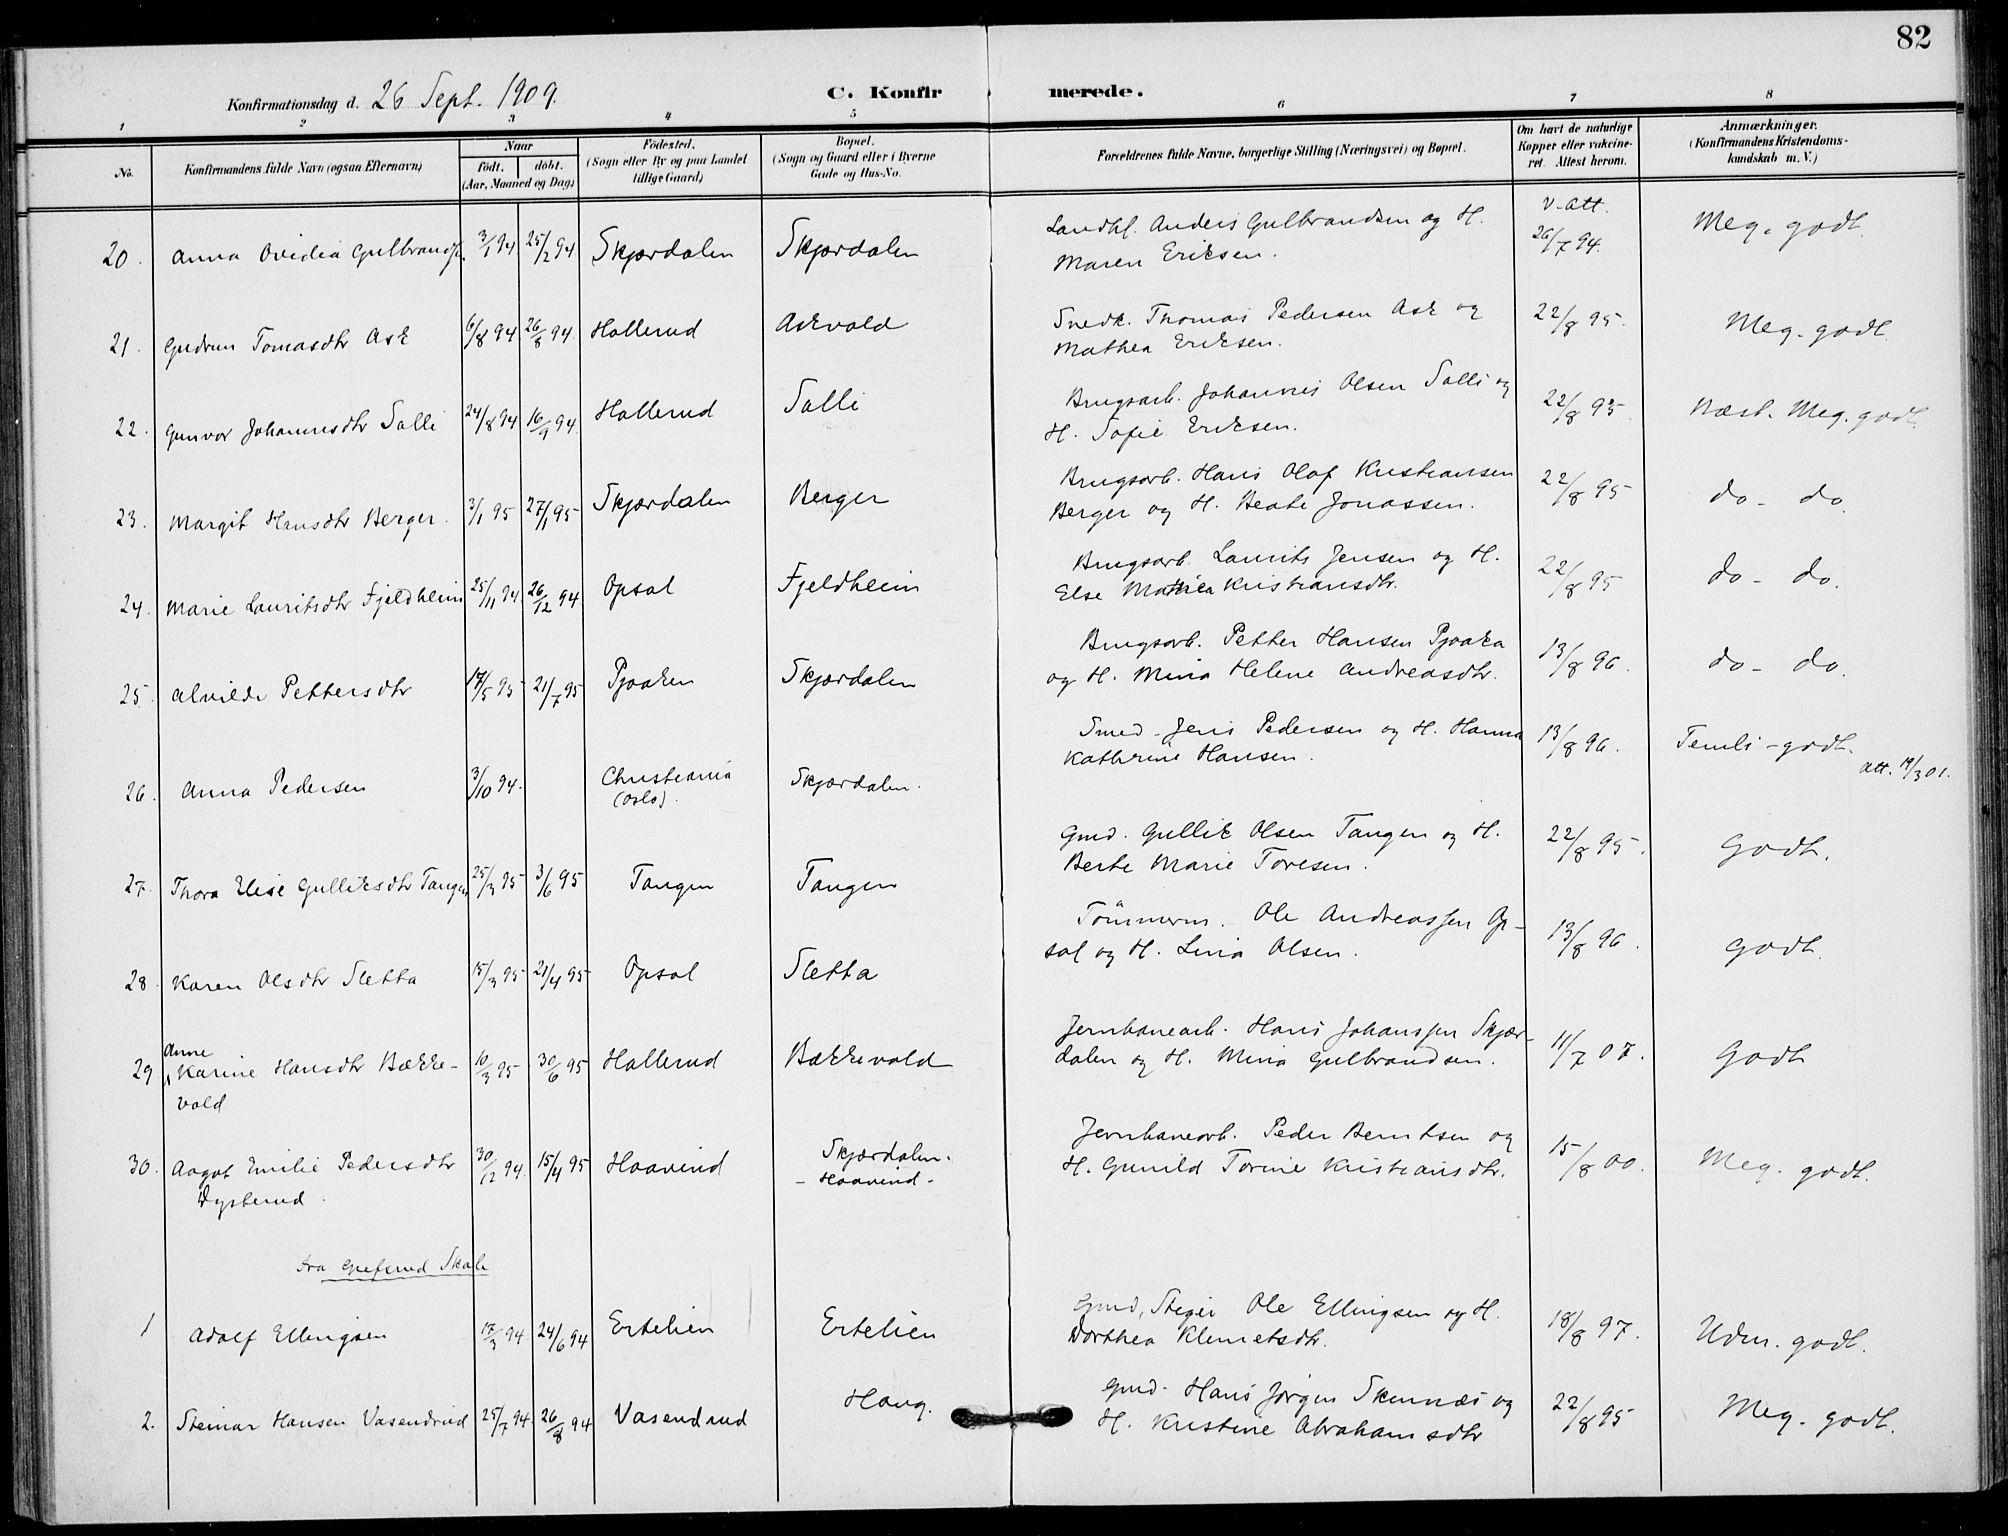 82
Konfirmationsdag d. 26 Sept. 1909.
C. Konfirmerede.
1 2 3 4 5 6 7 8
No. Konfirmandens fulde Navn (ogsaa Efternavn) Naar födt. döbt. (Aar, Maaned og Dag) Födested. (Sogn eller By og paa Landet tillige Gaard) Bopæl. (Sogn og Gaard eller i Byerne Gade og Hus-No. Forældrenes fulde Navne, borgerlige Stilling (Næringsvei) og Bopæl. Om havt de naturlige Kopper eller vakcineret. Attest herom. Anmærkninger. (Konfirmandens Kristendomskundskab m. V.)
20. Anna Ovidia Gulbrandsen 3/1 94 25/2 94 Skjærdalen Skjærdalen Landhl. Anders Gulbrandsen og H. V. att. Meg. godt.
Maren Eriksen. 26/7 94.
21. Gudrun Tomasdtr Ask 6/8 94 26/8 94 Hallerud Askvold Snedk. Thomas Pedersen Ask og 22/8 95. Meg. godt.
Mathea Eriksen.
22. Gunvor Johannesdtr Salli 24/8 94 16/9 94 Hallerud Salli Brugsarb. Johannes Olsen Salli og 22/8 95. Næst. Meg. godt.
H. Sofie Eriksen.
23. Margit Hansdtr Berger. 3/1 95 27/1 95 Skjærdalen Berger Brugsarb. Hans Olaf Kristiansen 22/8 95 do - do.
Berger og H. Beate Jonassen.
24. Marie Lauritsdtr Fjeldheim 25/11 94 26/12 94 Opsal Fjeldheim Brugsarb. Laurits Jensen og H. 22/8 95 do - do.
Else Mathea Kristiansdtr.
25. Alvilde Pettersdtr 17/5 95 21/7 95 Pjaaken Skjærdalen Brugsarb. Petter Hansen Pjaaka 13/8 96. do - do.
og H. Mina Helene Andreasdtr.
26. Anna Pedersen 3/10 94. Christiania Skjærdalen. Smed Jens Pedersen og H. Hanna 13/8 96. Temli - godt.
(Oslo). Kathrine Hansen. Att. 19/3 01.
27. Thora Elise Gulliksdtr Tangen 25/3 95 3/6 95 Tangen Tangen Gmd. Gullik Olsen Tangen og H. 22/8 95. Godt.
Berte Marie Toresen.
28. Karen Olsdtr Sletta 15/3 95 21/4 95 Opsal Sletta Tömmerm. Ole Andreassen Op- 13/8 96. Godt.
sal og H. Lina Olsen.
Anne
29 Karine Hansdtr Bække- 10/3 95 30/6 95 Hallerud Bækkevold Jernbanearb. Hans Johanssen Skjær- 11/7 07. Godt
vold dalen og H. Mina Gulbrandsen.
30. Aagot Emilie Pedersdtr 30/12 94. 15/4 95 Haavind Skjærdalen. Jernbanearb. Peder Berntsen og 15/8 00. Meg. godt.
Dysterud. - Haavind - H. Gunild Torine Kristiansdtr.
fra Gresrud Skole
1 Adolf Ellingsen 17/3 94 24/6 94 Ertelien Ertelien Gmd, Steger Ole Ellingsen og H. 18/8 97. Udm. godt.
Dorthea Klemetsdtr.
2. Steinar Hansen Vasendrud 25/7 94 26/8 94 Vasendrud Haug. Gmd. Hans Jørgen Skumnæs og 22/8 95 Meg. godt.
H. Kristine Abrahamsdtr